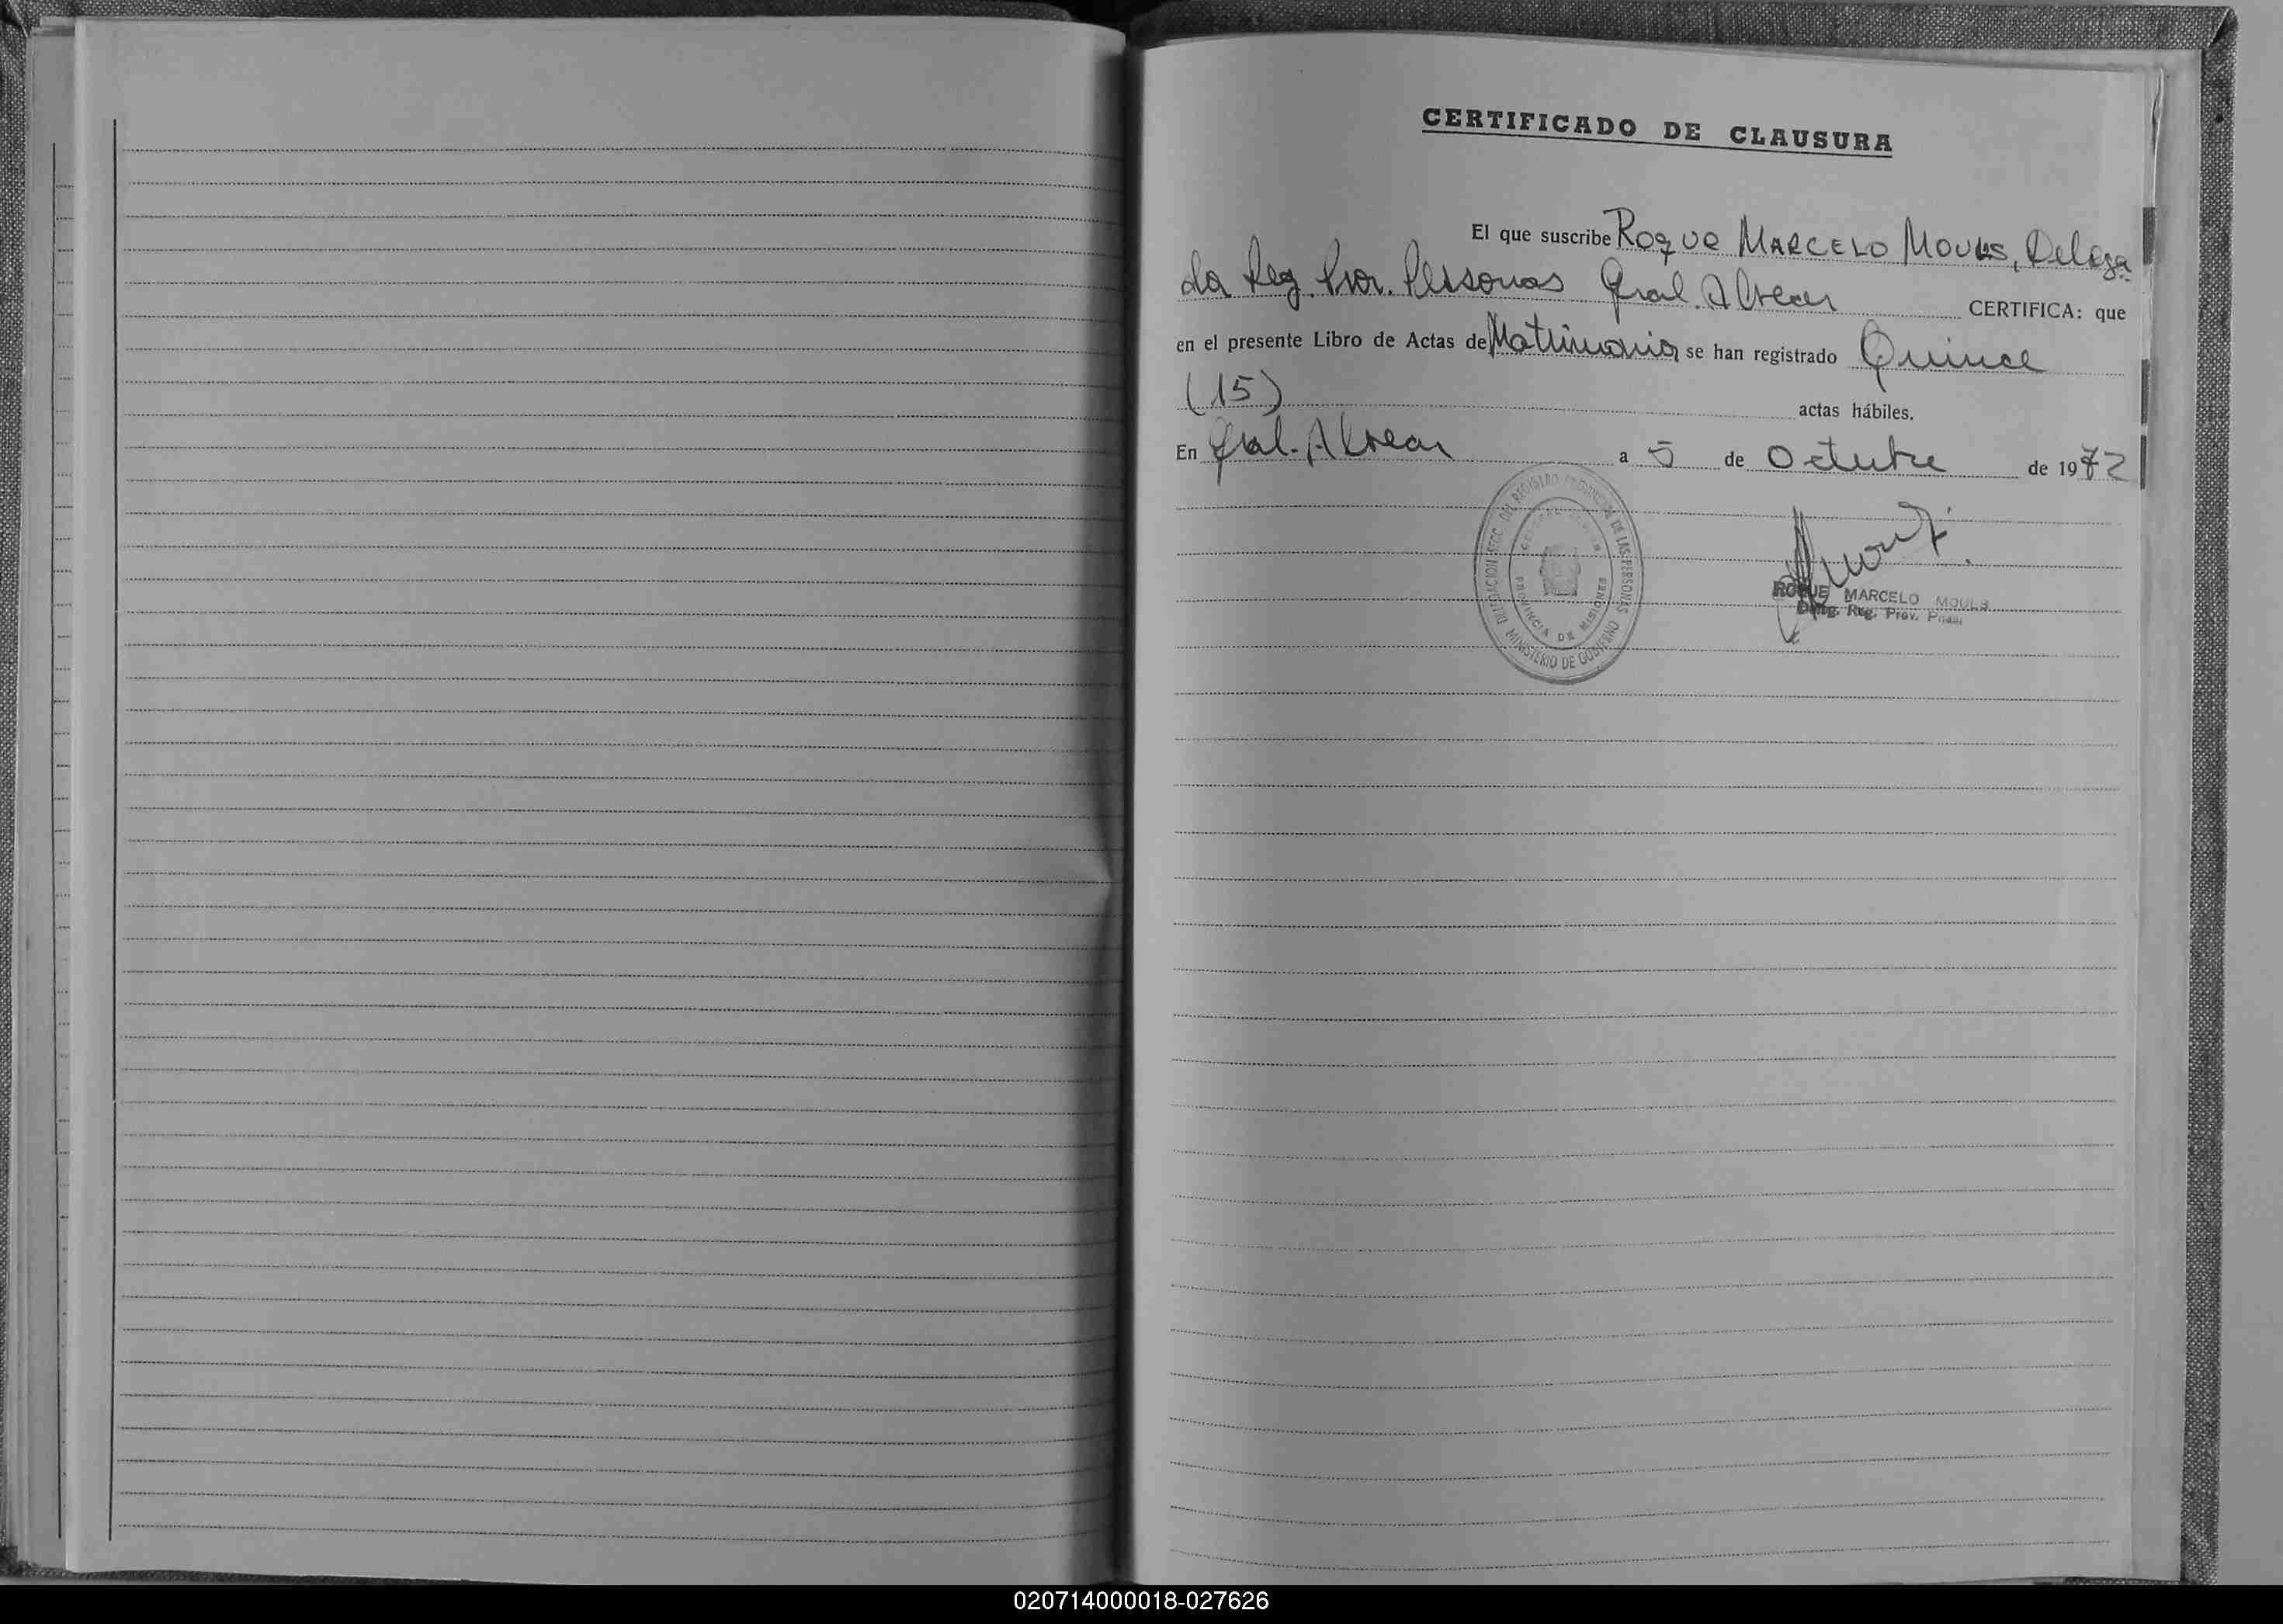 CERTIFICADO DE CLAUSURA
El que suscribe Roque MARCELO MOULS, Delega
do Reg. Prov. Personas Gral. Alvear CERTIFICA: que
en el presente Libro de Actas de Matrimonio se han registrado Quince
(15) actas hábiles.
En Gral. Alvear a 5 de Octubre de 1972
DELEGACION SECC. DEL REGISTRO PROVINCIAL DE LAS PERSONAS
MINISTERIO DE GOBIERNO
PROVINCIA DE MISIONES
ROQUE MARCELO MOULS
Deleg. Reg. Prov. Pnas.
020714000018-027626